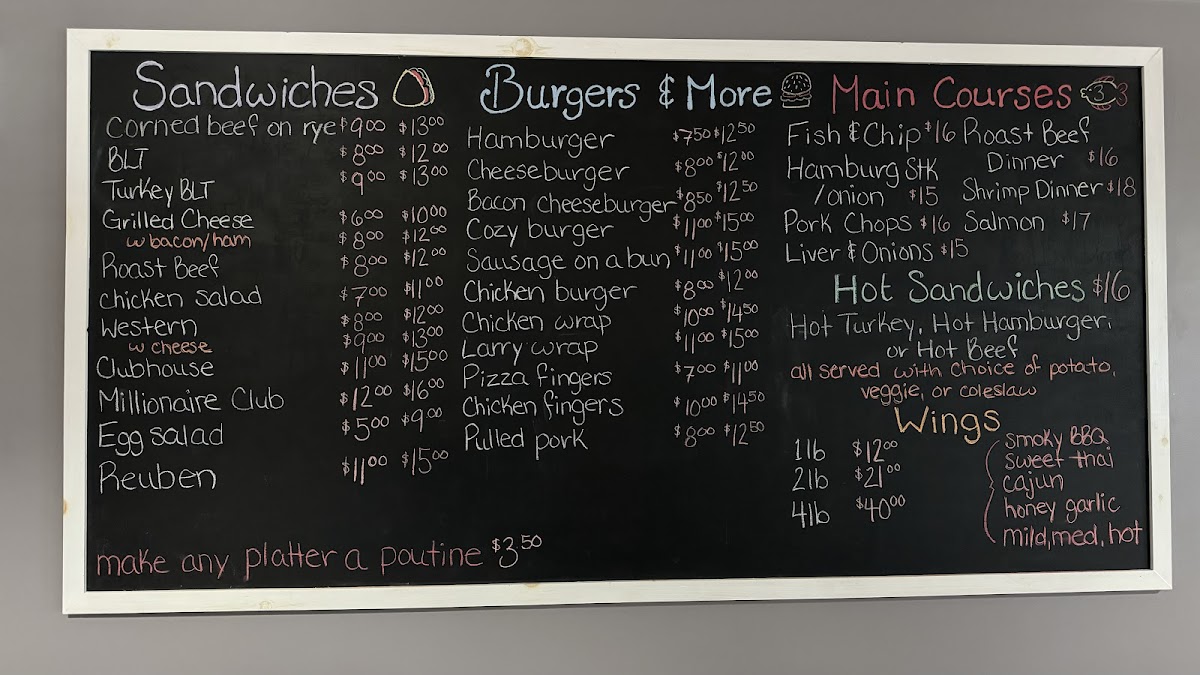 Sandwiches
Corned beef on rye $9.00 $13.00
BLT $8.00 $12.00
Turkey BLT $9.00 $13.00
Grilled Cheese $6.00 $10.00
w bacon/ham $8.00 $12.00
Roast Beef $8.00 $12.00
chicken salad $7.00 $11.00
Western $8.00 $12.00
w cheese $9.00 $13.00
Clubhouse $11.00 $15.00
Millionaire Club $12.00 $16.00
Egg salad $5.00 $9.00
Reuben $11.00 $15.00
make any platter a poutine $3.50
Burgers & More
Hamburger $7.50 $12.50
Cheeseburger $8.00 $12.00
Bacon cheeseburger $8.50 $12.50
Cozy burger $11.00 $15.00
Sausage on a bun $11.00 $15.00
Chicken burger $8.00 $12.00
Chicken wrap $10.00 $14.50
Larry wrap $11.00 $15.00
Pizza fingers $7.00 $11.00
Chicken fingers $10.00 $14.50
Pulled pork $8.00 $12.50
Main Courses
Fish & Chip $16
Hamburg Stk
/onion $15
Pork Chops $16
Liver & Onions $15
Roast Beef
Dinner $16
Shrimp Dinner $18
Salmon $17
Hot Sandwiches $16
Hot Turkey, Hot Hamburger,
or Hot Beef
all served with choice of potato,
veggie, or coleslaw
Wings
1lb $12.00
2lb $21.00
4lb $40.00
smoky BBQ
sweet thai
cajun
honey garlic
mild, med, hot